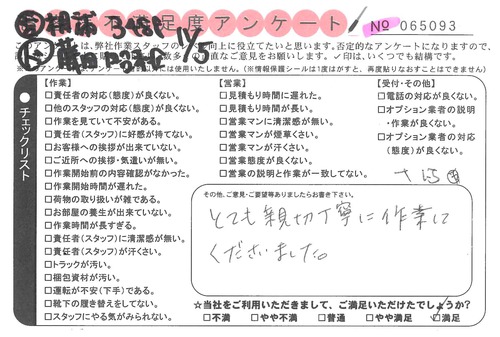 不満足度アンケート No 065093
このアンケートは、弊社作業スタッフの
向上に役立てたいと思います。否定的なアンケートになりますので、
直なご意見をお願いします。✓印は、いくつでも結構です。
以外には使用いたしません。(※情報保護シールは1度はがすと、再度貼りなおすことはできません)
チェックリスト
【作業】
□責任者の対応(態度)が良くない。
□他のスタッフの対応(態度)が良くない。
□作業を見ていて不安がある。
□責任者(スタッフ)に好感が持てない。
□お客様への挨拶が出来ていない。
□ご近所への挨拶・気遣いが無い。
□作業開始前の内容確認がなかった。
□作業開始時間が遅れた。
□荷物の取り扱いが雑である。
□お部屋の養生が出来ていない。
□作業時間が長すぎる。
□責任者(スタッフ)に清潔感が無い。
□責任者(スタッフ)が汗くさい。
□トラックが汚い。
□梱包資材が汚い。
□運転が不安(下手)である。
□靴下の履き替えをしてない。
□スタッフにやる気がみられない。
【営業】
□見積もり時間に遅れた。
□見積もり時間が長い。
□営業マンに清潔感が無い。
□営業マンが煙草くさい。
□営業マンが汗くさい。
□営業態度が良くない。
□営業の説明と作業が一致してない。
【受付・その他】
□電話の対応が良くない。
□オプション業者の説明
・作業が良くない。
□オプション業者の対応
(態度)が良くない。
その他、ご意見・ご要望等ありましたらお書き下さい。
とても親切丁寧に作業して
くださいました。
☆当社をご利用いただきまして、ご満足いただけたでしょうか?
□不満 □やや不満 □普通 □やや満足 ☑満足